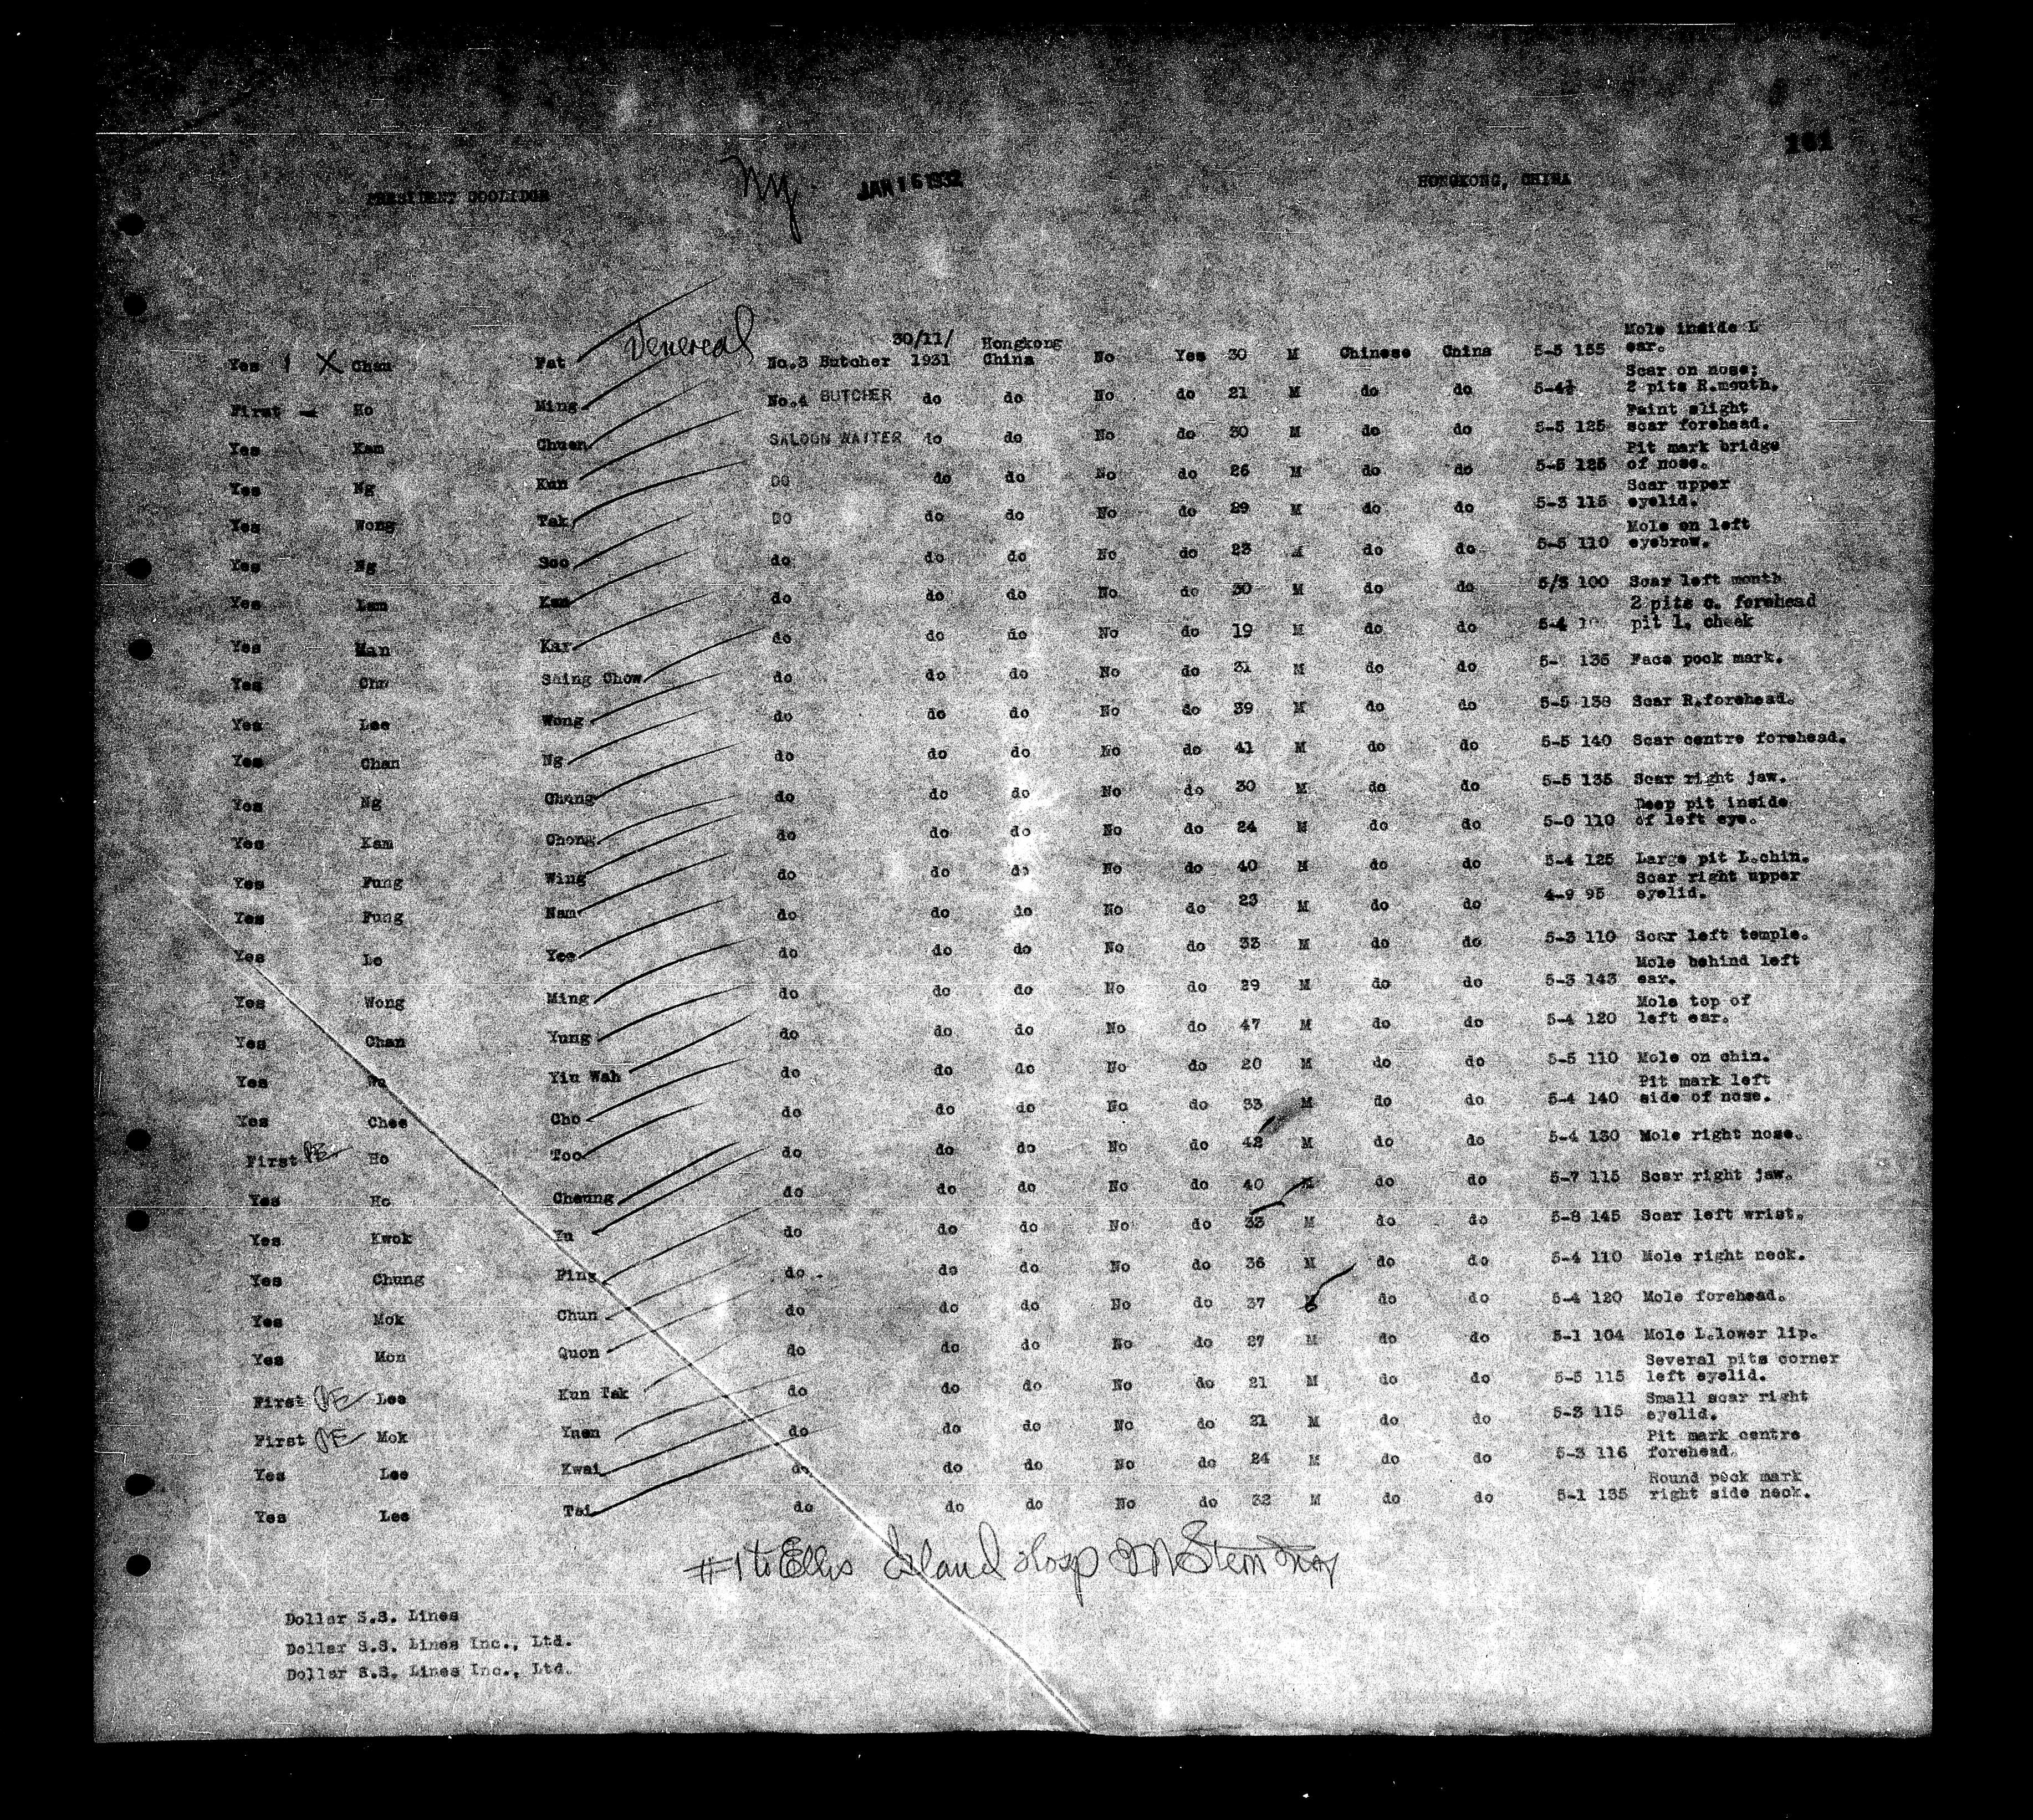 161
PRESIDENT COOLIDGE NY. JAN 16 1932 HONGKONG, CHINA
Yes 1 X Chan Fat Venereal No.3 Butcher 30/11/1931 Hongkong China No Yes 30 M Chinese China 5-5 155 Mole inside L ear.
First - Ho Ming No.4 BUTCHER do do No do 21 M do do 5-4½ Scar on nose; 2 pits R.mouth.
Yes Kam Chuen SALOON WAITER do do No do 30 M do do 5-5 125 Faint slight scar forehead.
Yes Ng Kun DO do do No do 26 M do do 5-5 125 Pit mark bridge of nose.
Yes Wong Tak DO do do No do 29 M do do 5-3 115 Scar upper eyelid.
Yes Ng Soo do do do No do 23 M do do 5-5 110 Mole on left eyebrow.
Yes Lam Kan do do do No do 30 M do do 5/3 100 Scar left mouth
Yes Man Kar do do do No do 19 M do do 5-4 2 pits c. forehead pit l. cheek
Yes Shing Chow do do do No do 31 M do do 5- 135 Face pock mark.
Yes Lee Wong do do do No do 39 M do do 5-5 138 Scar R.forehead.
Yes Chan Ng do do do No do 41 M do do 5-5 140 Scar centre forehead.
Yes Ng Chung do do do No do 30 M do do 5-5 135 Scar right jaw.
Yes Kam Chong do do do No do 24 M do do 5-0 110 Deep pit inside of left eye.
Yes Fung Wing do do do No do 40 M do do 5-4 125 Large pit L.chin.
Yes Fung Nam do do do No do 23 M do do 4-9 95 Scar right upper eyelid.
Yes Lo Yee do do do No do 33 M do do 5-3 110 Scar left temple.
Yes Wong Ming do do do No do 29 M do do 5-3 143 Mole behind left ear.
Yes Chan Yung do do do No do 47 M do do 5-4 120 Mole top of left ear.
Yes Wo Yiu Wah do do do No do 20 M do do 5-5 110 Mole on chin.
Yes Chee Cho do do do No do 33 M do do 5-4 140 Pit mark left side of nose.
First PE Ho Too do do do No do 42 M do do 5-4 130 Mole right nose.
Yes Ho Cheung do do do No do 40 M do do 5-7 115 Scar right jaw.
Yes Kwok Yu do do do No do 33 M do do 5-8 145 Scar left wrist.
Yes Chung Ping do do do No do 36 M do do 5-4 110 Mole right neck.
Yes Mok Chun do do do No do 37 M do do 5-4 120 Mole forehead.
Yes Mon Quon do do do No do 27 M do do 5-1 104 Mole L.lower lip.
First PE Lee Kun Tak do do do No do 21 M do do 5-5 115 Several pits corner left eyelid.
First PE Mok Ynen do do do No do 21 M do do 5-3 115 Small scar right eyelid.
Yes Lee Kwai do do do No do 24 M do do 5-3 116 Pit mark centre forehead.
Yes Lee Tai do do do No do 32 M do do 5-1 135 Round pock mark right side neck.
#1 to Ellis Island Hosp M Stern
Dollar S.S. Lines
Dollar S.S. Lines Inc., Ltd.
Dollar S.S. Lines Inc., Ltd.